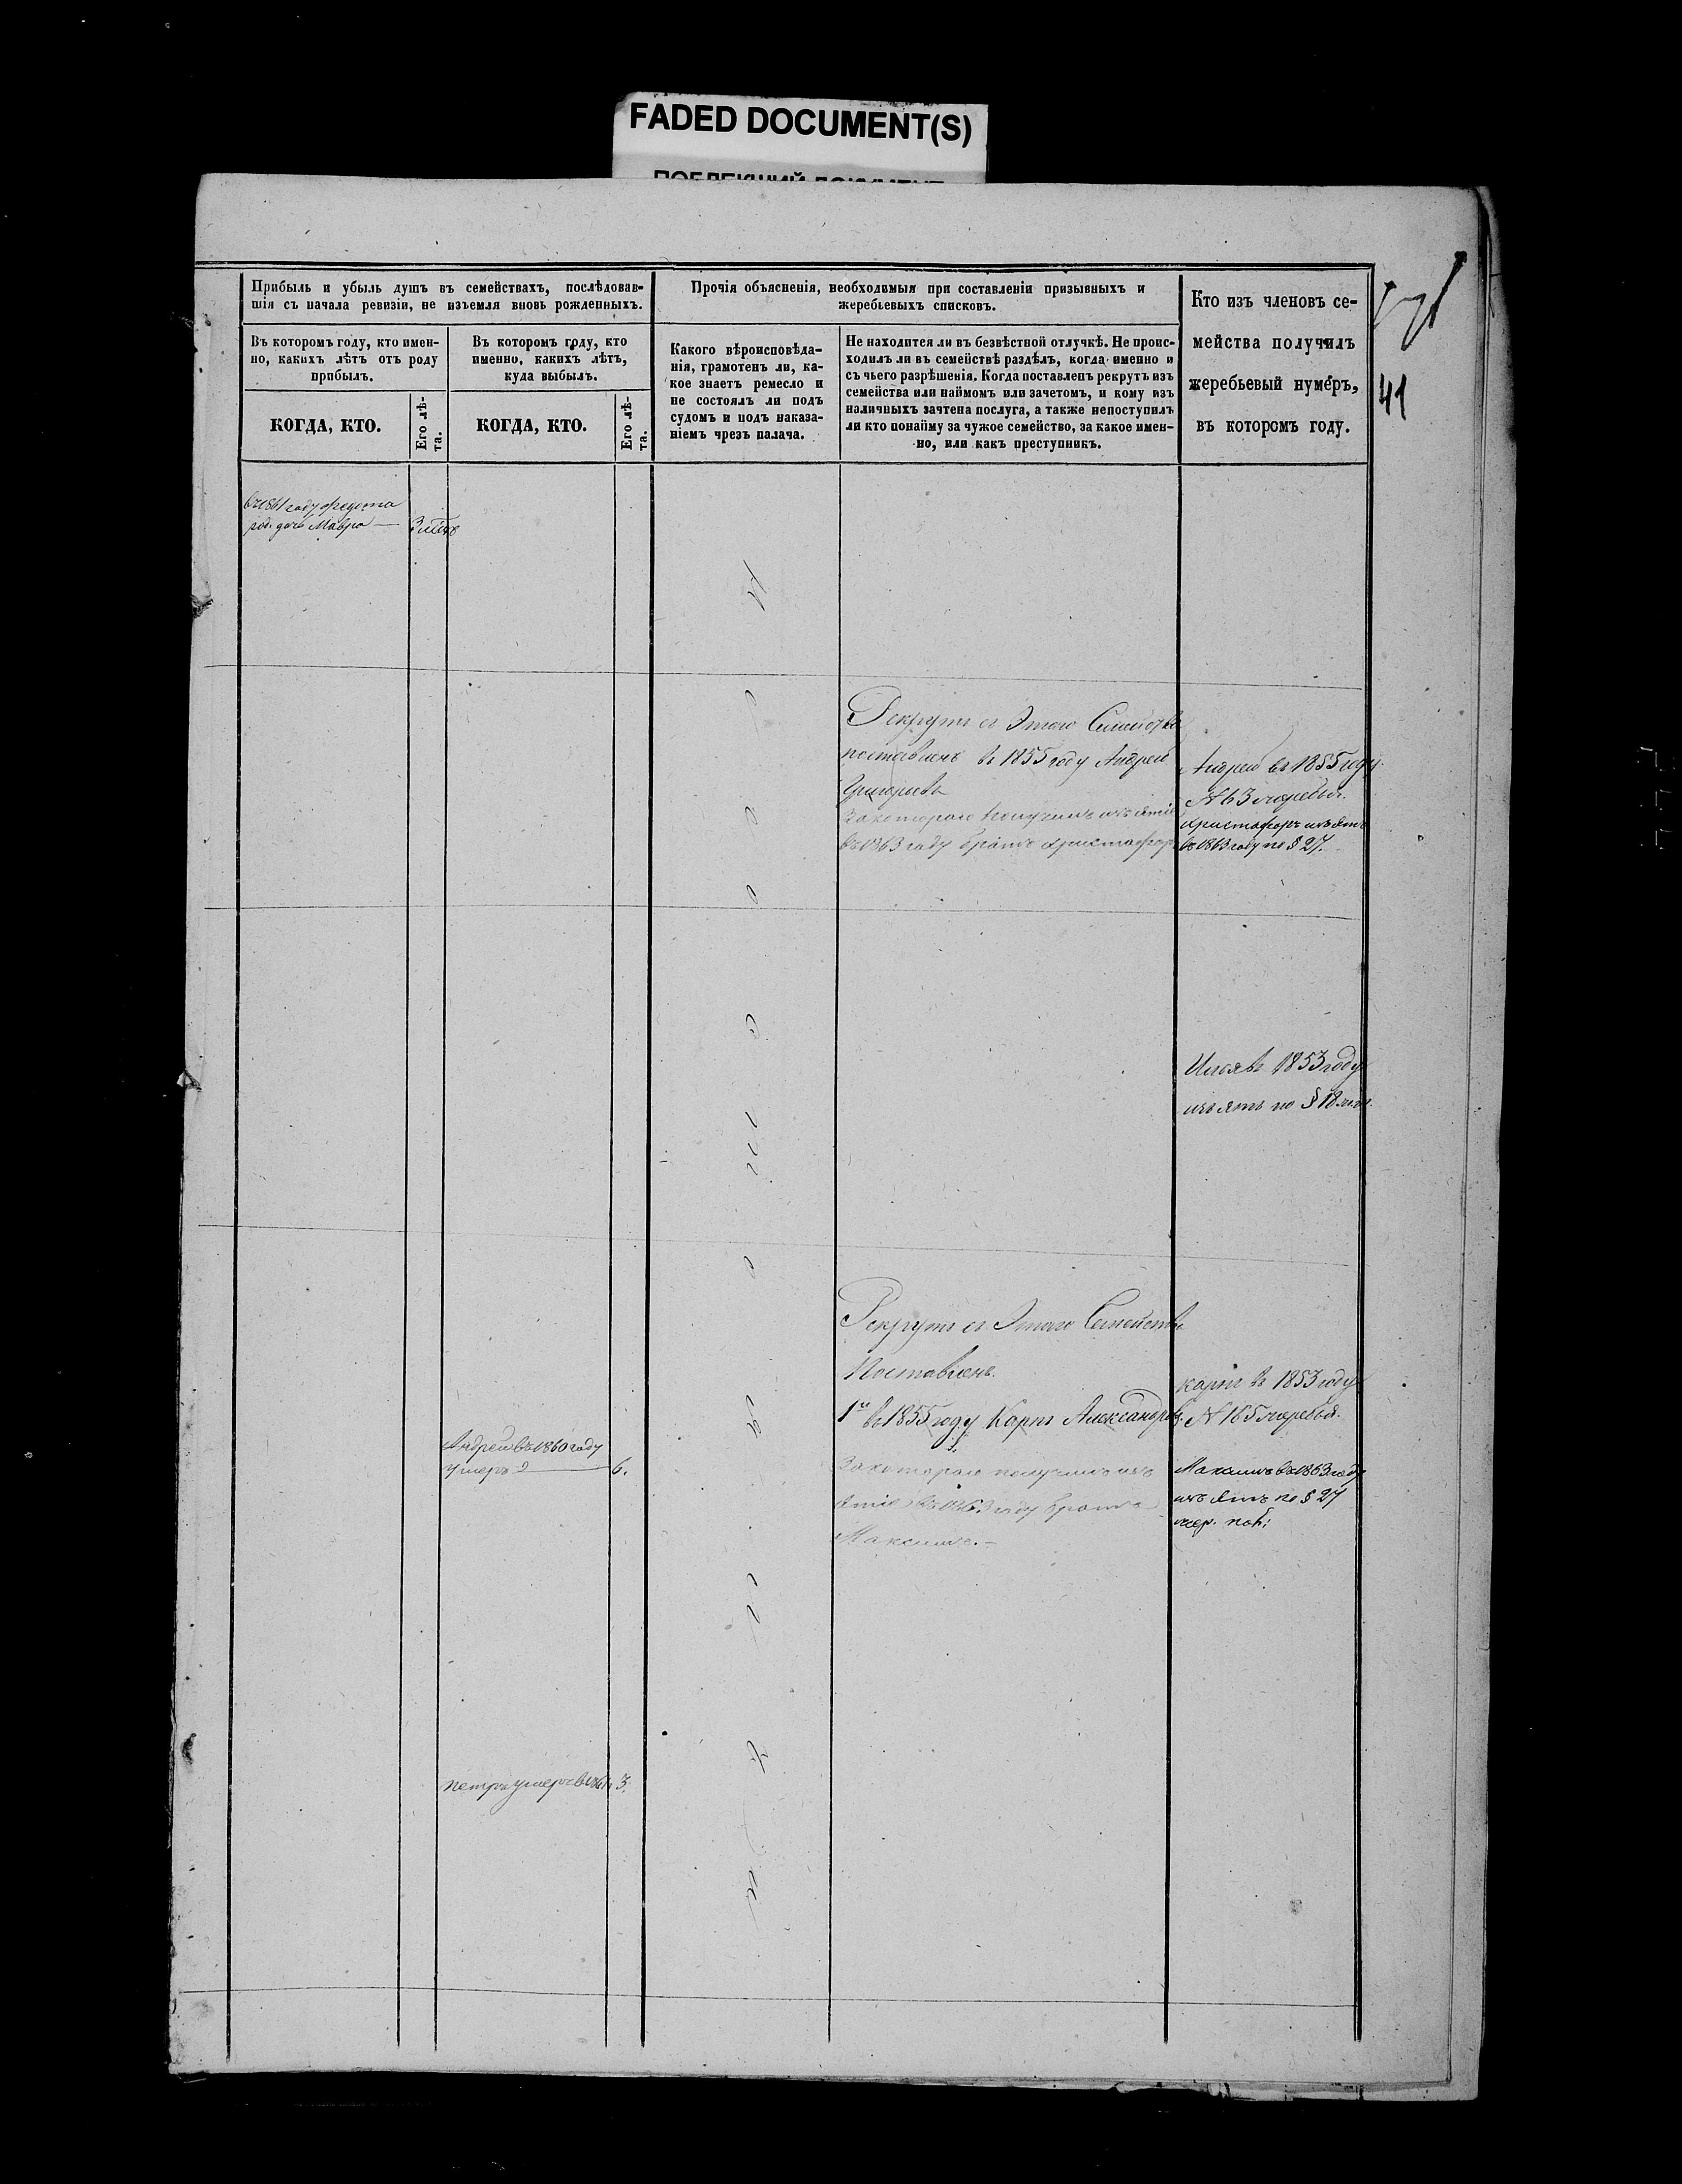 FADED DOCUMENT(S)
ПОБЛЕКШИЙ ДОКУМЕНТ
Прибыль и убыль душъ въ семействахъ, послѣдовав-
шія съ начала ревизіи, не изъемля вновь рожденныхъ.
Прочія объясненія, необходимыя при составленіи призывныхъ и
жеребьевыхъ списковъ.
Кто изъ членовъ се-
мейства получилъ
жеребьевый нумеръ,
въ которомъ году.
41
Въ которомъ году, кто имен-
но, какихъ лѣтъ отъ роду
прибылъ.
Въ которомъ году, кто
именно, какихъ лѣтъ,
куда выбылъ.
Какого вѣроисповѣда-
нія, грамотенъ ли, ка-
кое знаетъ ремесло и
не состоялъ ли подъ
судомъ и подъ наказа-
ніемъ чрезъ палача.
Не находится ли въ безвѣстной отлучкѣ. Не проис-
ходилъ ли въ семействѣ раздѣлъ, когда именно и
съ чьего разрѣшенія. Когда поставленъ рекрутъ изъ
семейства или наймомъ или зачетомъ, и кому изъ
наличныхъ зачтена послуга, а также непоступилъ
ли кто понайму за чужое семейство, за какое имен-
но, или какъ преступникъ.
КОГДА, КТО.
Его лѣ-
та.
КОГДА, КТО.
Его лѣ-
та.
въ 1861 году
дочь Мавра — 3
Рекрутъ съ Этаго Семейства
поставленъ въ 1855 году Андрей
Григорьевъ
За котораго получилъ изъятіе
въ 1863 году братъ Христофоръ
Андрей въ 1855 году
N 63 жеребья.
Христофоръ изъятъ
въ 1863 году по § 27.
Илья въ 1853 году
изъятъ по § 18
Рекрутъ съ Этаго Семейства
Поставленъ.
1й въ 1855 году Карпъ Александровъ.
За котораго получилъ изъ
ятіе въ 1863 году братъ
Максимъ.—
карпъ въ 1853 году
N 165 жеребья.
Максимъ въ 1863 году
изъятъ по § 27
жер. пол:
Андрей въ 1860 году
умеръ — 6.
петръ умеръ въ 3.